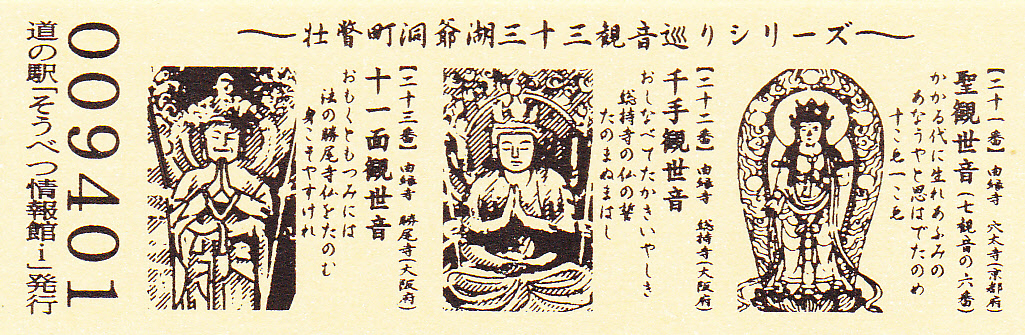 〜壮瞥町洞爺湖三十三観音巡りシリーズ〜
【二十一番】 由縁寺 穴太寺(京都府)
聖観世音(七観音の六番)
かかる代に生れあふみの
あなうやと思はでたのめ
十こゑ一こゑ
【二十二番】 由縁寺 総持寺(大阪府)
千手観世音
おしなべてたかきいやしき
総持寺の仏の誓
たのまぬまはし
【二十三番】 由縁寺 勝尾寺(大阪府)
十一面観世音
おもくともつみには
法の勝尾寺仏をたのむ
身こそやすけれ
009401
道の駅「そうべつ情報館i」発行